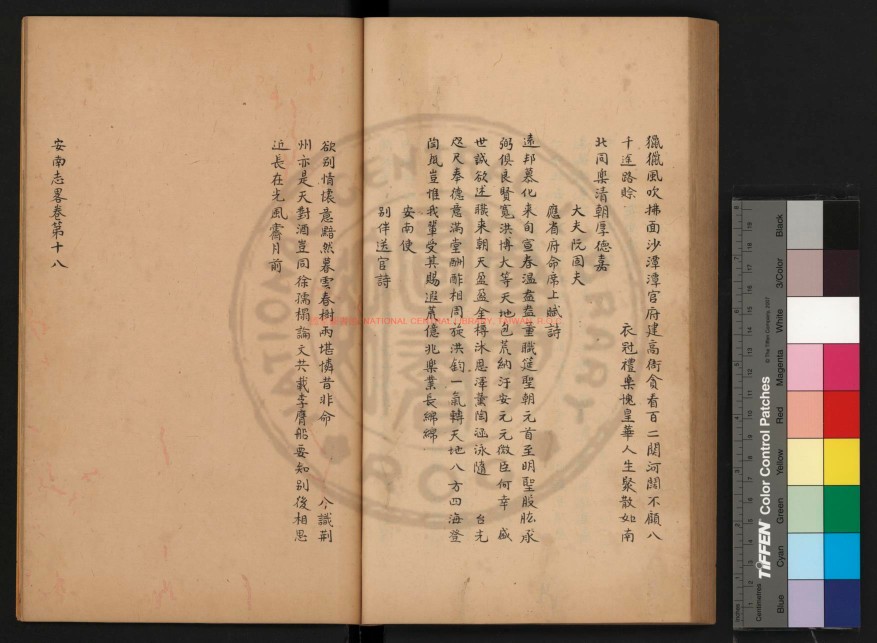 獵獵風吹拂面沙潭潭官府建高衙貪看百二関河闊不顧八
千途路賒 衣冠禮樂愧皇華人生聚散如南
北同樂清朝厚德嘉
大夫阮固夫
應省府命席上賦詩
遠邦慕化来旬宣春温盎盎董職筵聖朝元首至明聖股肱承
弼俱良賢寬洪博大等天地包荒納汙安元元微臣何幸 盛
世誠欲述職来朝天盈盈金樽沐恩澤薰陶涵泳隨 台光
咫尺奉德意滿堂酬酢相周旋洪鈞一氣轉天地八方四海登
陶甄豈惟我輩受其賜遐荒億兆樂業長綿綿
安南使
別伴送官詩
欲別情懷意黯然暮雲春樹兩堪憐昔非命 今識荆
州亦是天對酒豈同徐孺榻論文共載李膺船要知別後相思
近長在光風霽月前
安南志畧卷第十八
NATIONAL CENTRAL LIBRARY, TAIWAN, R.O.C.
TIFFEN Color Control Patches
© The Tiffen Company, 2007
Centimetres
Inches
Blue
Cyan
Green
Yellow
Red
Magenta
White
3/Color
Black